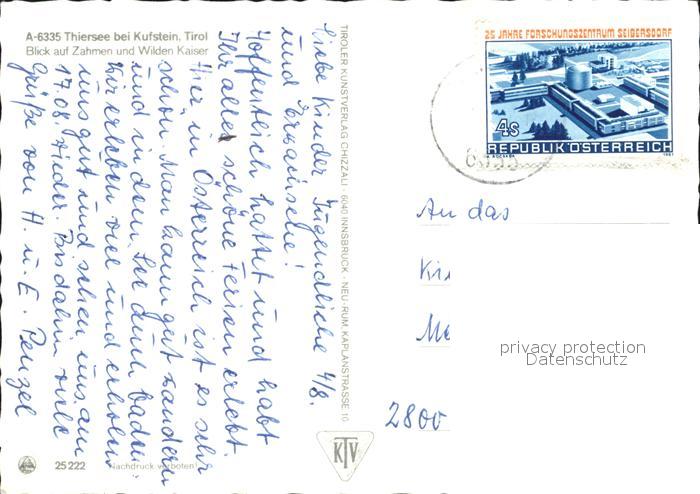 A-6335 Thiersee bei Kufstein, Tirol
Blick auf Zahmen und Wilden Kaiser
4/8.
Liebe Kinder, Jugendliche
und Erwachsene!
Hoffentlich hattet und habt
Ihr alle schöne Ferien erlebt.
Hier in Österreich ist es sehr
schön. Man kann gut wandern
und in dem See dann baden.
Wir erleben viel und erholen
uns gut und sehen uns am
17.08. wieder. Bis dahin viele
Grüße von H. u. E. Penzel
TIROLER KUNSTVERLAG CHIZZALI · 6040 INNSBRUCK · NEU-RUM, KAPLANSTRASSE 10
KTV
25 222
Nachdruck verboten!
25 JAHRE FORSCHUNGSZENTRUM SEIBERSDORF
4s
REPUBLIK ÖSTERREICH
1981
An das
Ki
Me
2800
privacy protection
Datenschutz